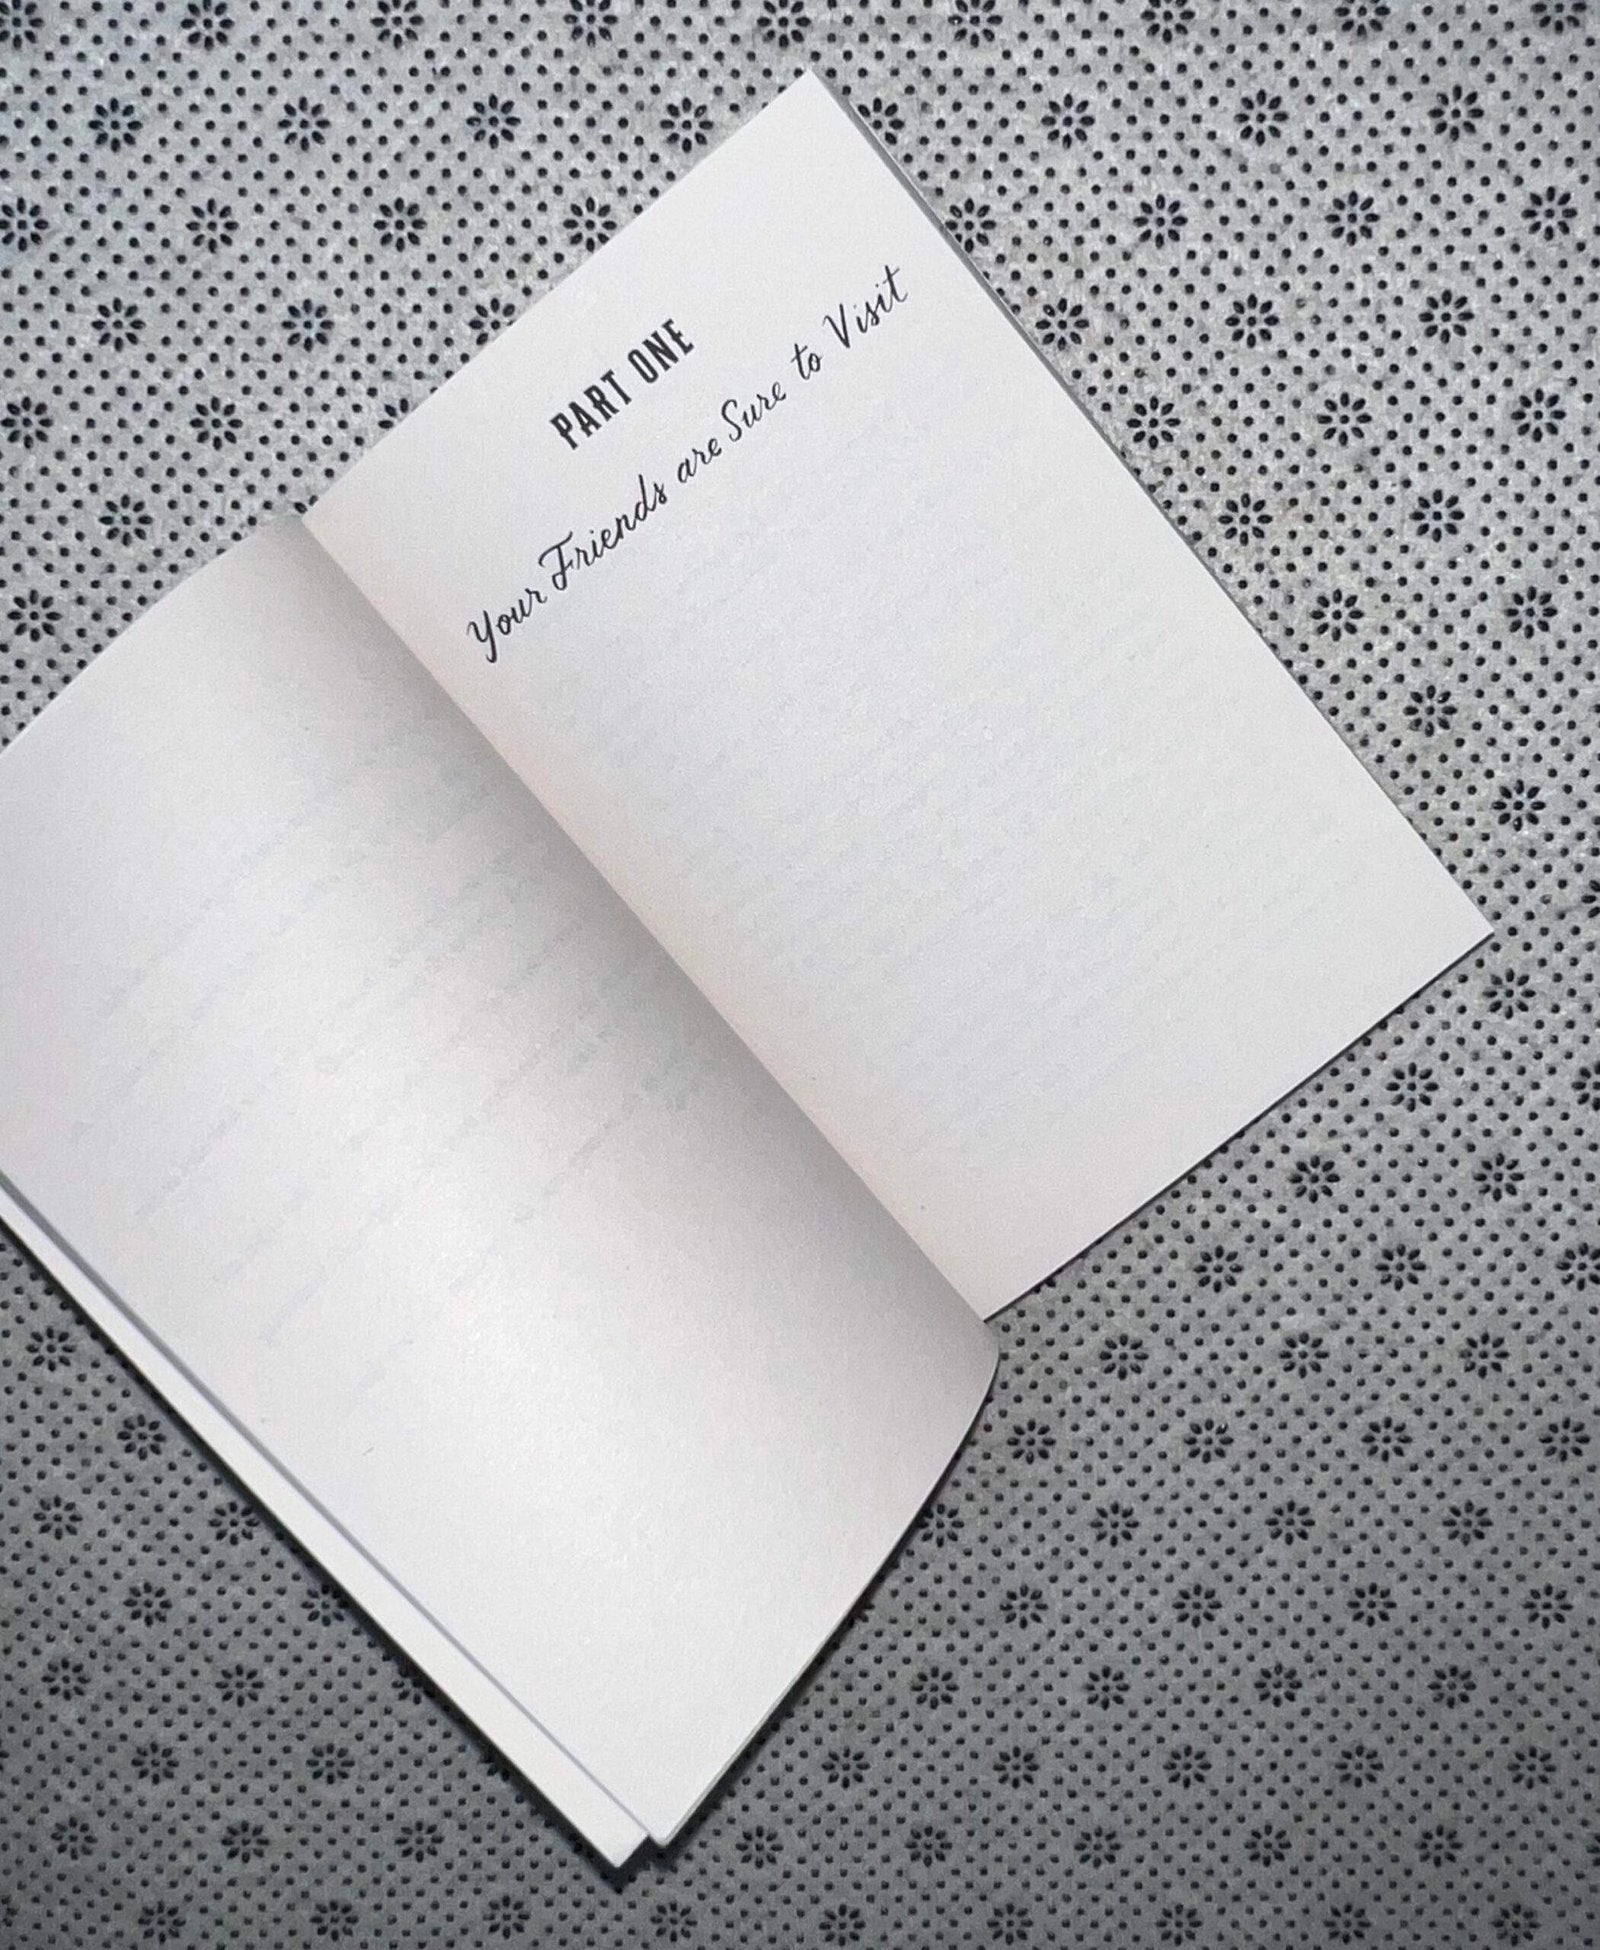 PART ONE
Your Friends are Sure to Visit